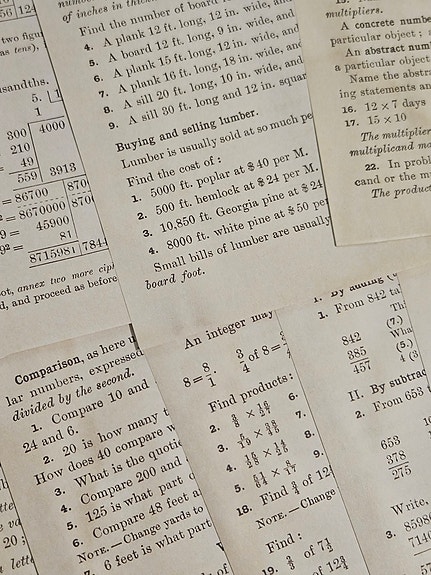 56 124
two figu
as tens),
usandths.
5.
1
300
4000
210
49
559
3913
= 86700
870
= 8670000
870
45900
81
8715981
784
ot, annex two more cip
d, and proceed as before
of inches in
Find the number of board
4. A plank 12 ft. long, 12 in. wide, and
5. A board 12 ft. long, 9 in. wide, and
6. A plank 15 ft. long, 12 in. wide, and
7. A plank 16 ft. long, 18 in. wide, and
8. A sill 20 ft. long, 10 in. wide, and
9. A sill 30 ft. long and 12 in. squar
Buying and selling lumber.
Lumber is usually sold at so much pe
Find the cost of :
1. 5000 ft. poplar at $40 per M.
2. 500 ft. hemlock at $24 per M.
3. 10,850 ft. Georgia pine at $24
4. 8000 ft. white pine at $50 per
Small bills of lumber are usually
board foot.
multipliers.
A concrete numbe
particular object ; a
An abstract numb
a particular object
Name the abstra
ing statements an
16. 12 × 7 days
17. 15 × 10
The multiplier
multiplicand ma
22. In probl
cand or the m
The product
Comparison, as here u
lar numbers, expressed
divided by the second.
1. Compare 10 and
24 and 6.
2. 20 is how many t
How does 40 compare w
3. What is the quotie
4. Compare 200 and
5. 125 is what part o
6. Compare 48 feet a
NOTE.—Change yards to
7. 6 feet is what part
20 ;
An integer may
8 = 8/1. 3/4 of 8 =
Find products :
2.
6.
3.
7.
4.
8.
5.
9.
18. Find 3/4 of 12
NOTE.—Change
Find :
19. of 7
of 12
1. By adding
1. From 842 ta
842
(7.)
Th
385
Wha
457
(5.)
4 (3
II. By subtrac
2. From 653 t
653
378
275
Write,
3. 8598
714
57